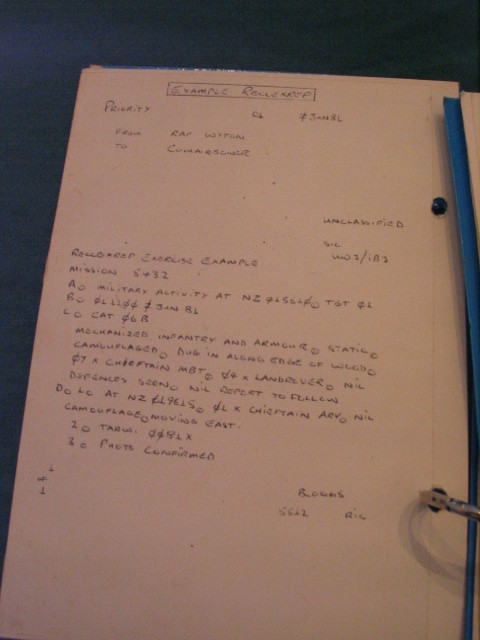 EXAMPLE ROLLEXREP
PRIORITY
Ø JAN 81
FROM RAF WYTON
TO COMAIRSOUR
UNCLASSIFIED
SIC
REXEREP EXERCISE EXAMPLE
MISSION 5432
A⊙ MILITARY ACTIVITY AT NZ Ø15616⊙ TGT Ø1
B⊙ Ø112ØØ Z JAN 81
C⊙ CAT Ø6B
MECHANIZED INFANTRY AND ARMOUR⊙ STATIC⊙
CAMOUFLAGED⊙ DUG IN ALONG EDGE OF WOOD⊙
Ø7 X CHIEFTAIN MBT⊙ Ø4 X LANDROVER⊙ NIL
DEFENCES SEEN⊙ NIL REPORT TO FOLLOW
CHIEFTAIN ARV⊙ NIL
CAMOUFLAGE⊙ MOVING EAST.
2⊙ ØØ81X
3⊙ PHOTO CONFIRMED
1
1
BLOGGS
RIC